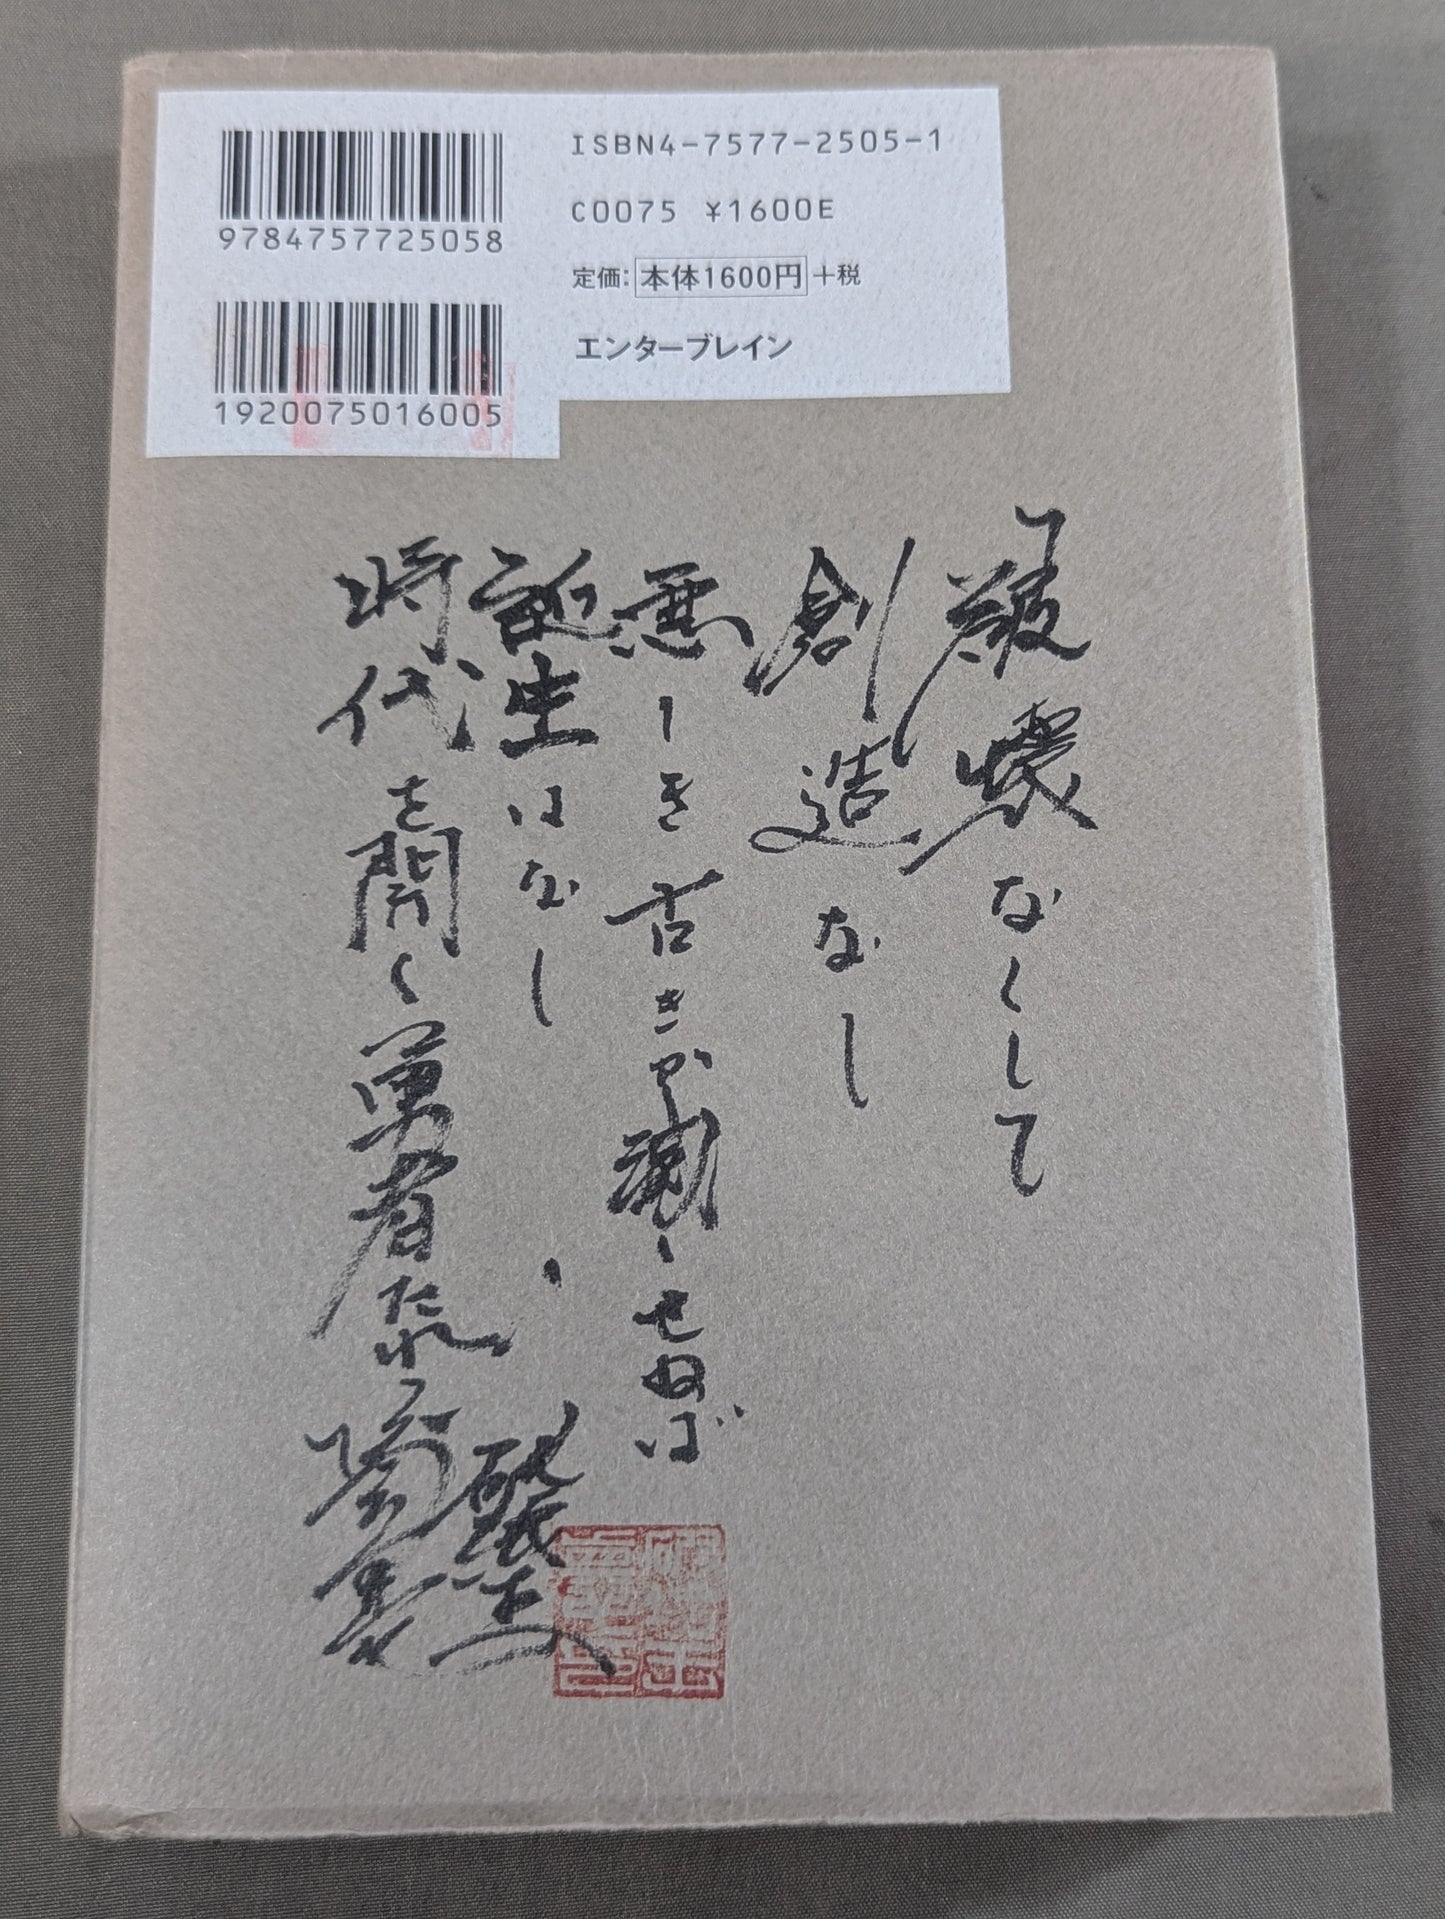 9784757725058
1920075016005
ISBN4-7577-2505-1
C0075 ¥1600E
定価：本体1600円+税
エンターブレイン
「破壊なくして
創造なし
悪しき古きが滅せねば
誕生はなし、
時代を開く勇者たれ